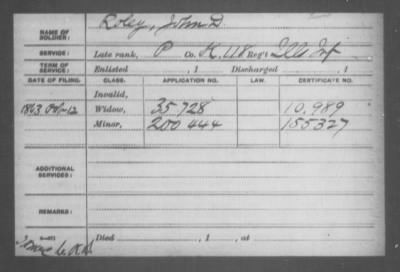 NAME OF SOLDIER: Roley, John D.
SERVICE: Late rank, P Co. K, 118 Reg't Ills Inf
TERM OF SERVICE: Enlisted , 1 Discharged , 1
DATE OF FILING. CLASS. APPLICATION NO. LAW. CERTIFICATE NO.
Invalid,
1863 Widow, 35 728 10,989
Minor, 200 444 155327
ADDITIONAL SERVICES:
REMARKS:
Died , 1 , at